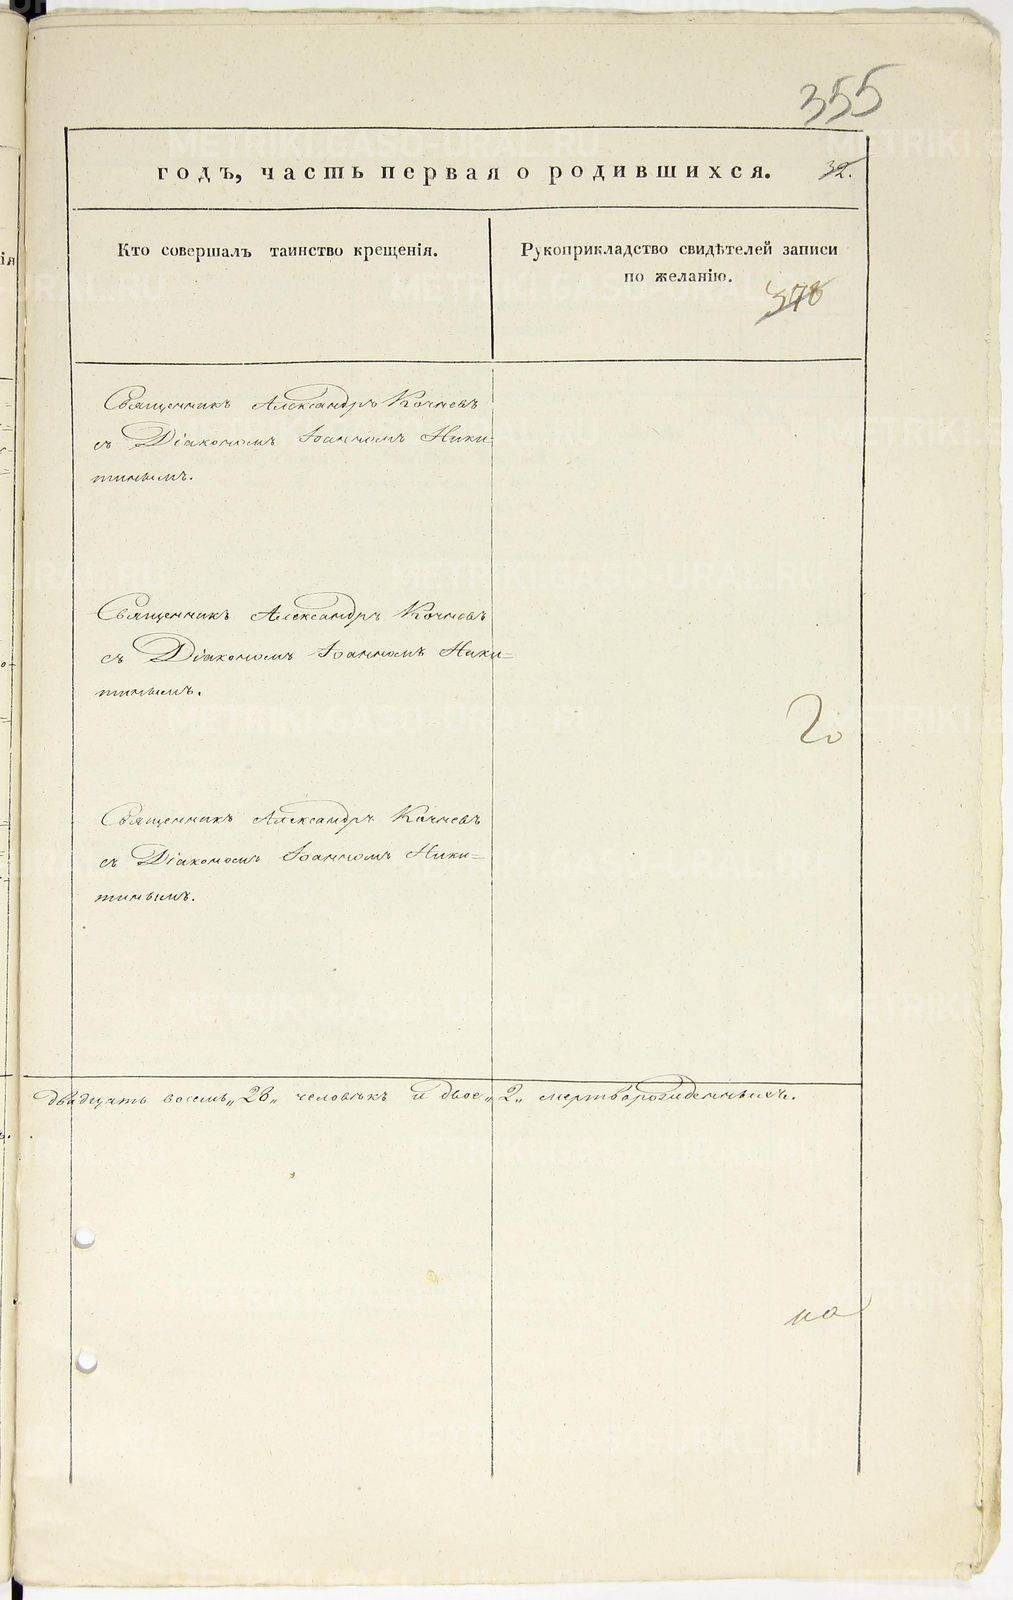 355
годъ, часть первая о родившихся. 32.
Кто совершалъ таинство крещенія.
Рукоприкладство свидѣтелей записи
по желанію.
378
Священникъ Александръ Кочневъ
съ Діакономъ Іоанномъ Ники-
тинымъ.
Священникъ Александръ Кочневъ
съ Діакономъ Іоанномъ Ники=
тинымъ.
Священникъ Александръ Кочневъ
съ Діакономъ Іоанномъ Ники=
тинымъ.
двадцать восемь „28„ человѣкъ и двое „2„ мертворожденныхъ.
METRIKI.GASO-URAL.RU